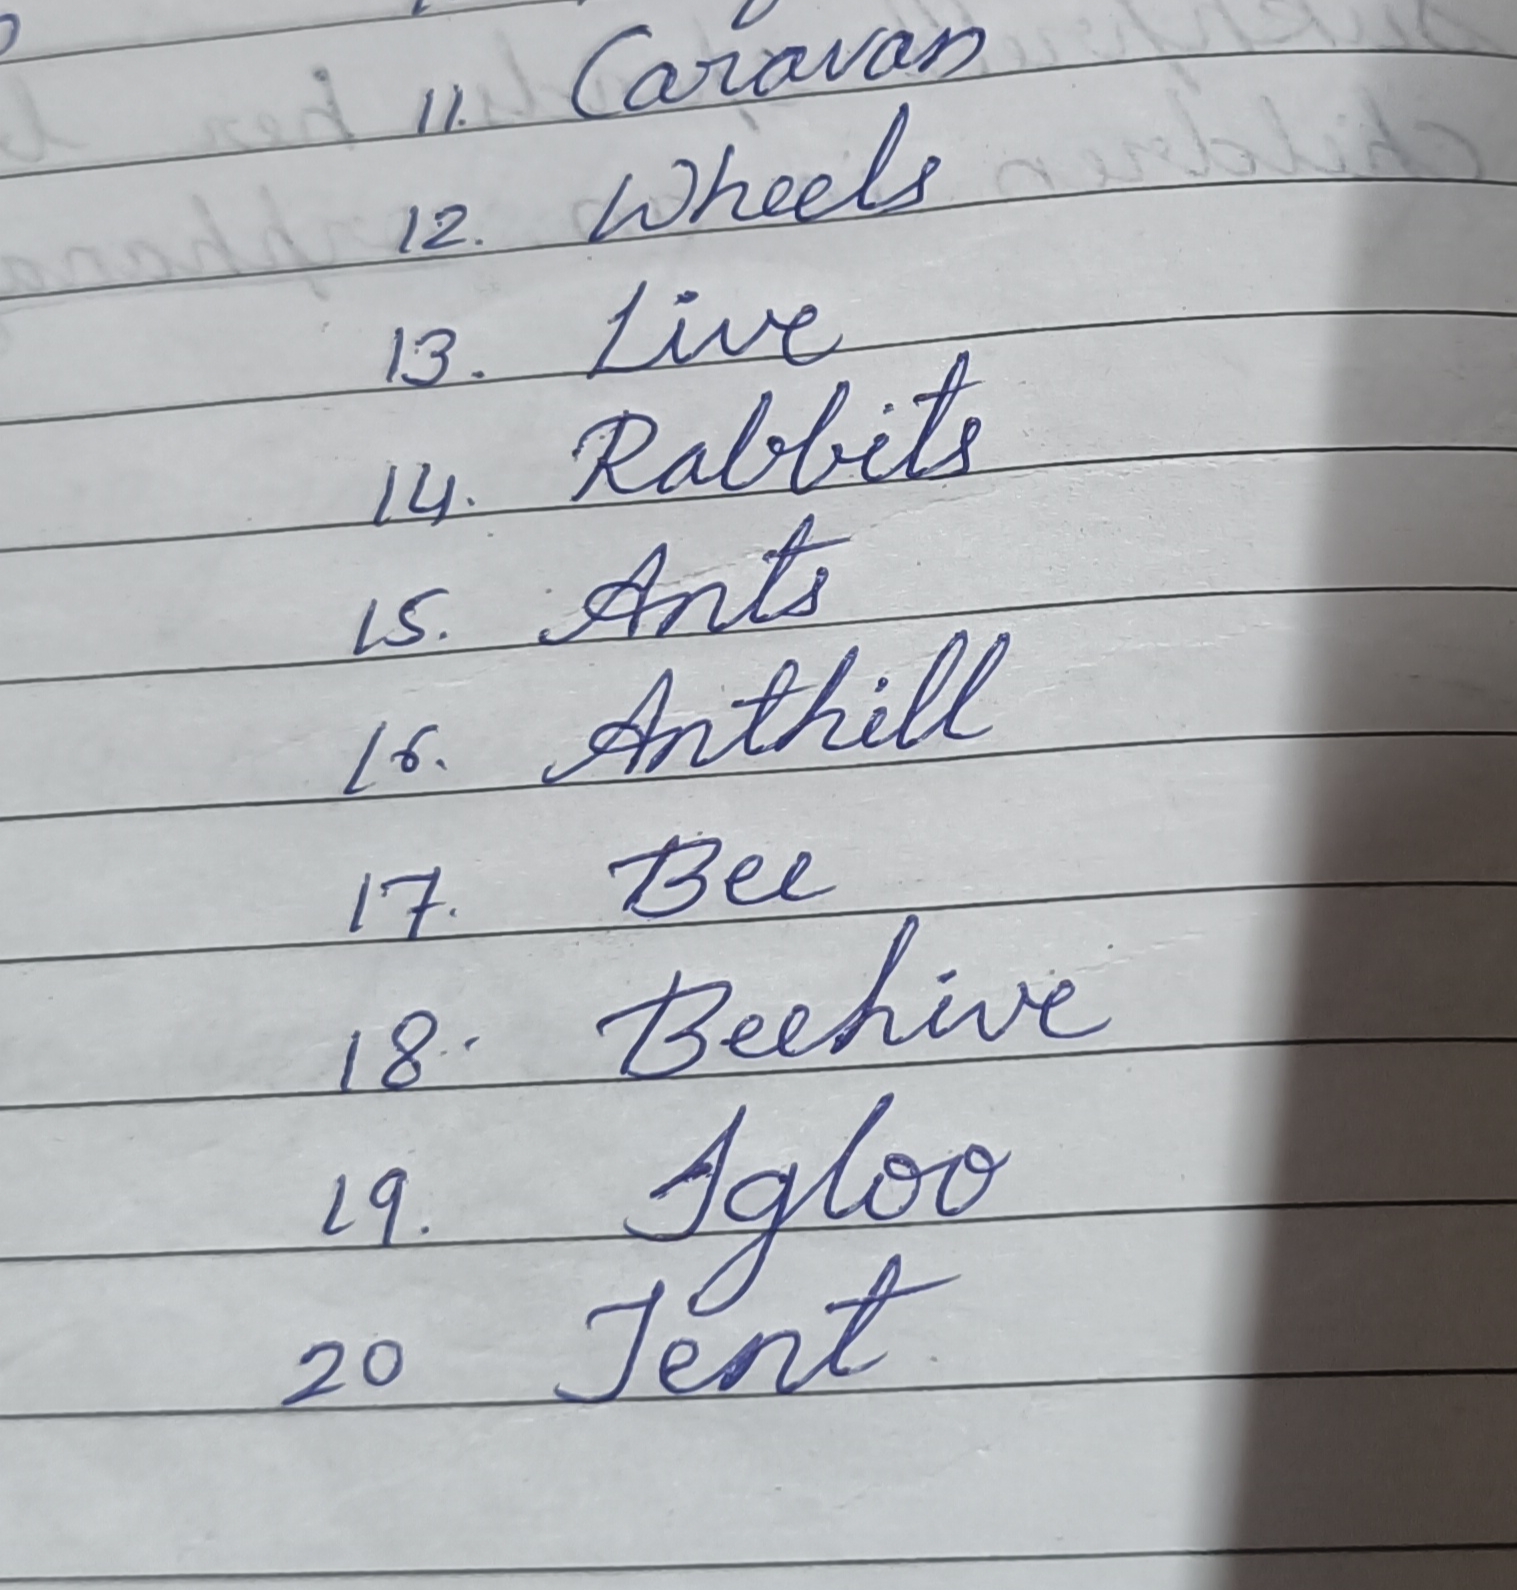 11. Caravan
12. Wheels
13. Live
14. Rabbits
15. Ants
16. Anthill
17. Bee
18. Beehive
19. Igloo
20 Tent